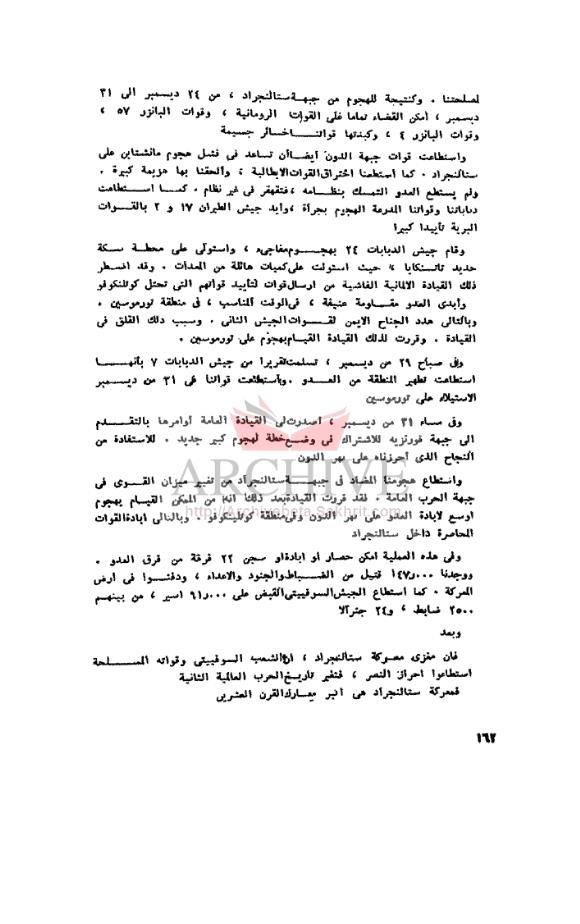 لصلحتنا . وكنتيجة للهجوم من جبهة ستالنجراد ، من ٢٤ ديسمبر الى ٣١
ديسمبر ، أمكن القضاء تماما على القوات الرومانية ، وقوات البانزر ٥٧ ،
وقوات البانزر ٤ ، وكبدتها قواتنا خسائر جسيمة
واستطاعت قوات جبهة الدون أيضا أن تساعد فى فشل هجوم مانشتاين على
ستالنجراد . كما أستطعنا اختراق القوات الايطالية ، والحقنا بها هزيمة كبيرة .
ولم يستطع العدو التمسك بنظامه ، فتقهقر فى غير نظام . كما استطاعت
دباباتنا وقواتنا المدرعة الهجوم بجرأة ، وأيد جيش الطيران ١٧ و ٢ بالقوات
البرية تأييدا كبيرا
وقام جيش الدبابات ٢٤ بهجوم مفاجىء ، واستولى على محطة سكة
حديد تاتسنكايا ، حيث استولت على كميات هائلة من المعدات . وقد اضطر
ذلك القيادة الالمانية الفاشية من ارسال قوات لتأييد قواتهم التى تحتل كوتلنكوفو
وأبدى العدو مقاومة عنيفة ، فى الوقت المناسب ، فى منطقة تورموسين .
وبالتالى هدد الجناح الايمن لقوات الجيش الثانى . وسبب ذلك القلق فى
القيادة . وقررت لذلك القيادة القيام بهجوم على تورموسين .
وفى صباح ٢٩ من ديسمبر ، تسلمت تقريرا من جيش الدبابات ٧ بأنها
استطاعت تطهير المنطقة من العدو . وباستطاعت قواتنا فى ٣١ من ديسمبر
الاستيلاء على تورموسين
وفى مساء ٣١ من ديسمبر ، أصدرت لى القيادة العامة أوامرها بالتقدم
الى جبهة فورنزيه للاشتراك فى وضع خطة لهجوم كبير جديد . للاستفادة من
النجاح الذى أحرزناه على نهر الدون
واستطاع هجومنا المضاد فى جبهة ستالنجراد من تغيير ميزان القوى فى
جبهة الحرب العامة . فقد قررت القيادة بعد ذلك انه من الممكن القيام بهجوم
أوسع لابادة العدو على نهر الدون وفى منطقة كوتلينكوفو . وبالتالى ابادة القوات
المحاصرة داخل ستالنجراد
وفى هذه العملية امكن حصار أو ابادة أو سجن ٢٢ فرقة من فرق العدو .
ووجدنا ١٤٧٫٠٠٠ قتيل من الضباط والجنود والاعداد ، ودفنوا فى أرض
المعركة . كما استطاع الجيش السوفييتى القبض على ٩١٫٠٠٠ أسير ، من بينهم
٢٥٠٠ ضابط ، و٢٤ جنرالا
وبعد
فان مغزى معركة ستالنجراد ، ان الشعب السوفييتى وقواته المسلحة
استطاعوا احراز النصر ، فتغير تاريخ الحرب العالمية الثانية
فمعركة ستالنجراد هى أكبر معارك القرن العشرين
١٦٢
ARCHIVE
http://Archivebeta.Sakhrit.com